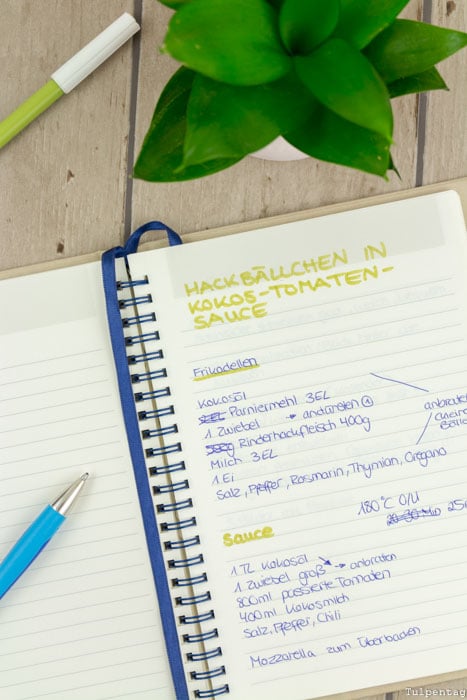 HACKBÄLLCHEN IN
KOKOS-TOMATEN-
SAUCE
Frikadellen
Kokosöl
Paniermehl 3EL
1 Zwiebel → andünsten ①
Rinderhackfleisch 400g
Milch 3EL
1 Ei
Salz, Pfeffer, Rosmarin, Thymian, Oregano
anbraten
180°C O/U
Sauce
1 TL Kokosöl
1 Zwiebel groß → anbraten
800ml passierte Tomaten
400ml Kokosmilch
Salz, Pfeffer, Chili
Mozzarella zum Überbacken
Tulpentag